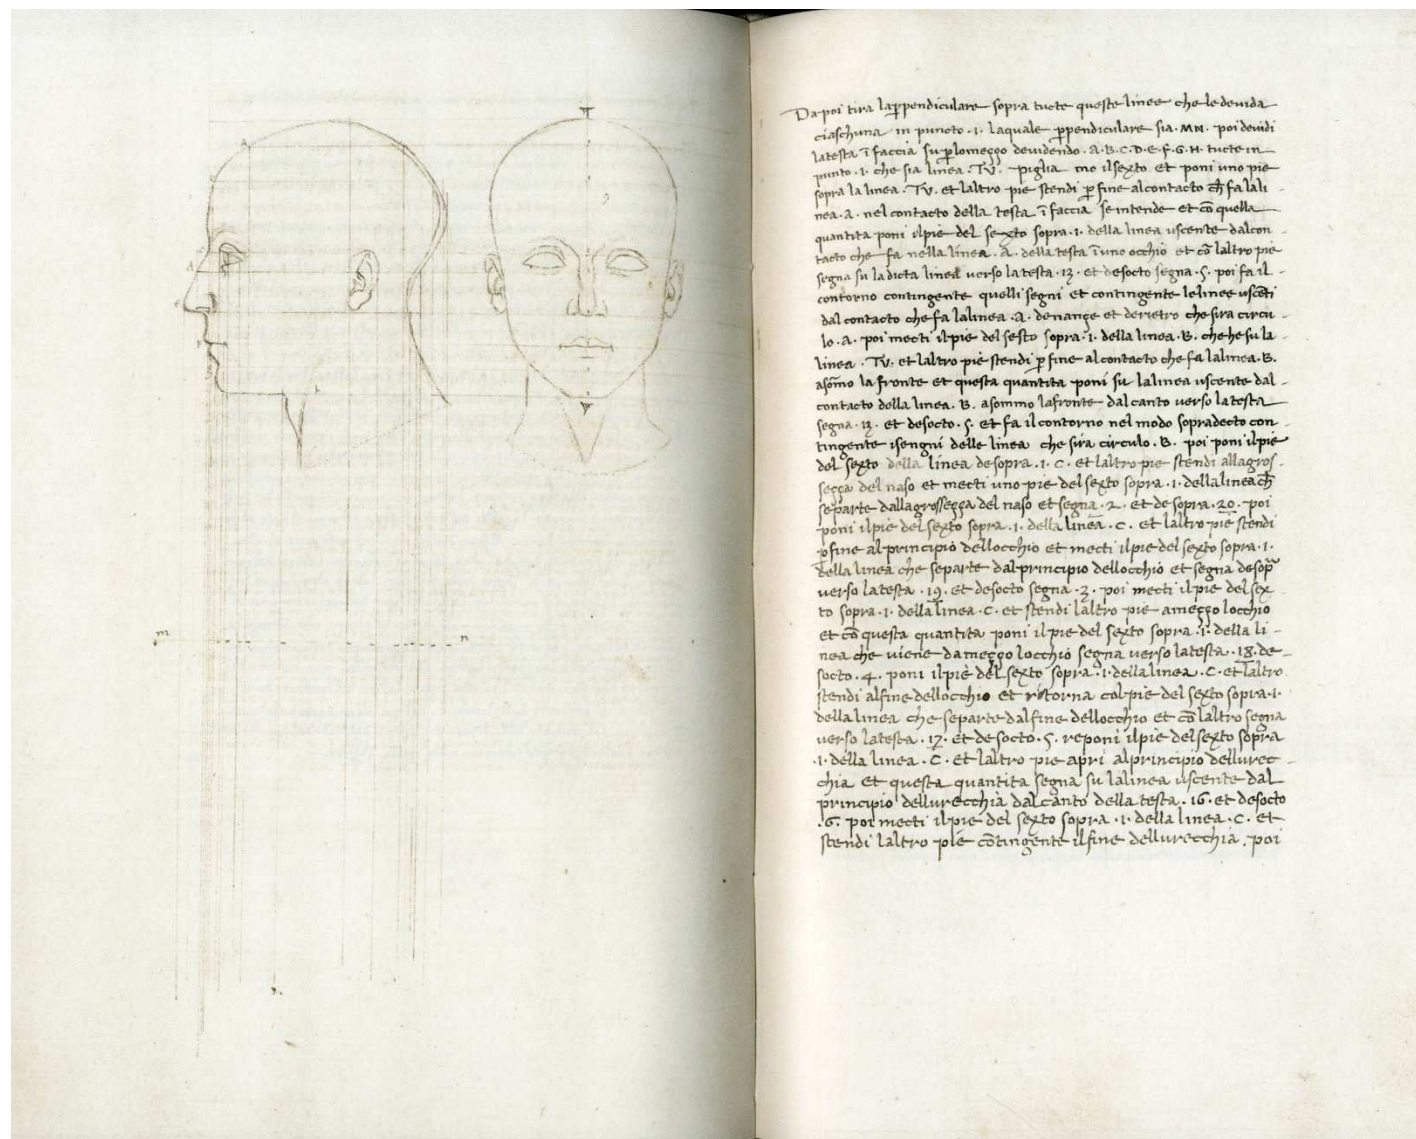 A
m
n
Da poi tira la ꝑpendiculare sopra tucte queste linee che le devida
ciaschuna in puncto .I. laquale ꝑpendiculare sia .MN. poi devidi
latesta ī faccia su ꝑlomeçço devidendo .A.B.C.D.E.F.G.H. tucte in
punto .I. che sia linea .TV. piglia mo ilsexto et poni uno pie
sopra la linea .TV. et laltro pie stendi ꝑ fine alcontacto ch̄ fa lali-
nea .A. nel contacto della testa ī faccia se intende et cō quella
quantita poni ilpie del sexto sopra .I. della linea uscente dalcon-
tacto che fa nella linea .A. della testa ī uno occhio et cō laltro pie
segna su la dicta linea verso la testa .13. et desocto segna .5. poi fa il
contorno contingente quelli segni et contingente le linee uscēti
dal contacto che fa lalinea .A. denançe et derietro che sira circu-
lo .A. poi mecti ilpie del sesto sopra .I. della linea .B. che he su la
linea .TV. et laltro pie stendi ꝑ fine al contacto che fa lalinea .B.
asōmo la fronte et questa quantita poni su lalinea uscente dal
contacto della linea .B. asommo lafronte dal canto verso latesta
segna .13. et desocto .5. et fa il contorno nel modo sopradecto con-
tingente isengni delle linea che sira circulo .B. poi poni ilpie
del sexto della linea desopra .I. C. et laltro pie stendi allagros-
seçça del naso et mecti uno pie del sexto sopra .I. dellalinea ch̄
separte dallagrosseçça del naso et segna .2. et de sopra .20. poi
poni ilpie del sexto sopra .I. della linea .C. et laltro pie stendi
ꝑfine al principio dellocchio et mecti ilpie del sexto sopra .I.
della linea che separte dal principio dellocchio et segna desopᵃ
verso latesta .19. et desocto segna .3. poi mecti ilpie del sex
to sopra .I. della linea .C. et stendi laltro pie ameçço locchio
et cō questa quantita poni ilpie del sexto sopra .I. della li-
nea che viene da meçço locchio segna verso latesta .18. de-
socto .4. poni ilpie del sexto sopra .I. dellalinea .C. et laltro
stendi alfine dellocchio et ritorna colpie del sexto sopra .I.
dellalinea che separte dalfine dellocchio et cō laltro segna
verso latesta .17. et de socto .5. reponi ilpie del sexto sopra
.I. della linea .C. et laltro pie apri alprincipio dellurec-
chia et questa quantita segna su lalinea uscente dal
principio dellurecchia dal canto della testa .16. et desocto
.6. poi mecti ilpie del sexto sopra .I. della linea .C. et
stendi laltro pie cōtingente ilfine dellurecchia . poi